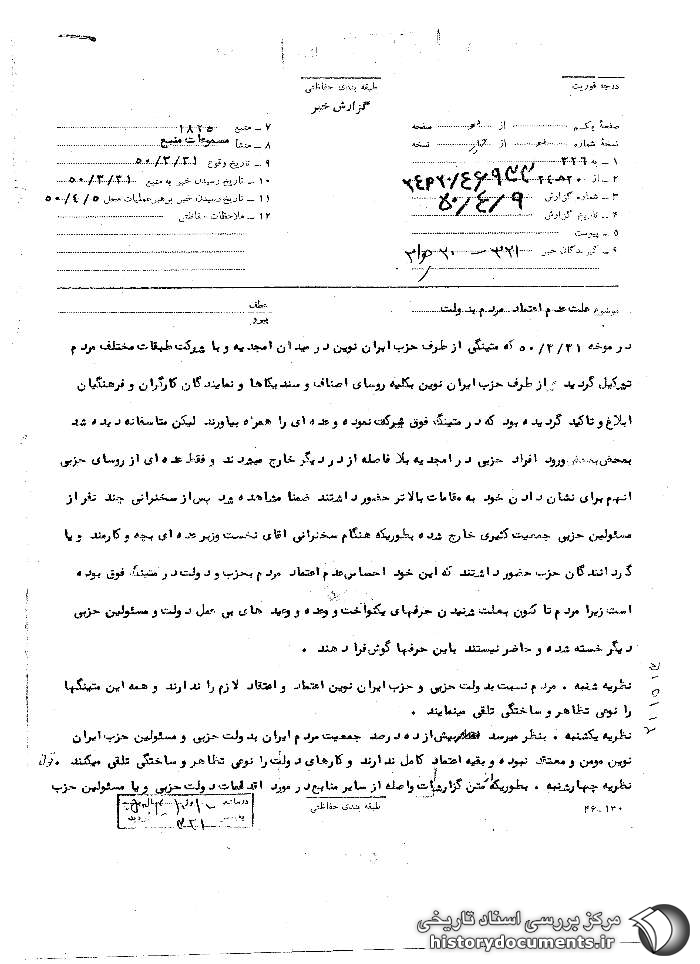 درجه فوریت
طبقه بندی حفاظتی
گزارش خبر
صفحه یکم از دو صفحه
نسخه شماره دو از چهار نسخه
۱ - به ۳۲۶
۲ - از ۲۰ ه ۲۴
۳ - شماره گزارش
۴ - تاریخ گزارش ۵۰/۴/۹
۵ - پیوست
۶ - گیرندگان خبر ۳۲۱ - ۲۰
۷ - منبع ۱۸۲۵
۸ - منشأ مسموعات منبع
۹ - تاریخ وقوع ۵۰/۳/۳۱
۱۰ - تاریخ رسیدن خبر به منبع ۵۰/۳/۳۱
۱۱ - تاریخ رسیدن خبر برهبر عملیات محل ۵۰/۴/۵
۱۲ - ملاحظات حفاظتی
موضوع علت عدم اعتماد مردم بدولت
عطف
پیرو
در مورخه ۵۰/۳/۳۱ که متینگی از طرف حزب ایران نوین در میدان امجدیه و با شرکت طبقات مختلف مردم
تشکیل گردید از طرف حزب ایران نوین بکلیه روسای اصناف و سندیکاها و نمایندگان کارگران و فرهنگیان
ابلاغ و تاکید گردیده بود که در متینگ فوق شرکت نموده و عده ای را همراه بیاورند لیکن متاسفانه دیده شد
بمحض ورود افراد حزبی در امجدیه بلا فاصله از در دیگر خارج میشدند و فقط عده ای از روسای حزبی
انهم برای نشان دادن خود به مقامات بالاتر حضور داشتند ضمنا مشاهده شد پس از سخنرانی چند نفر از
مسئولین حزبی جمعیت کثیری خارج شده بطوریکه هنگام سخنرانی اقای نخست وزیر عده ای بچه و کارمند و یا
گردانندگان حزب حضور داشتند که این خود احساس عدم اعتماد مردم بحزب و دولت در متینگ فوق بوده
است زیرا مردم تا کنون بعلت شنیدن حرفهای یکنواخت و وعده و وعید های بی عمل دولت و مسئولین حزبی
دیگر خسته شده و حاضر نیستند باین حرفها گوش فرا دهند .
نظریه شنبه . مردم نسبت بدولت حزبی و حزب ایران نوین اعتماد و اعتقاد لازم را ندارند و همه این متینگها
را نوعی تظاهر و ساختگی تلقی مینمایند .
نظریه یکشنبه . بنظر میرسد بیش از ده درصد جمعیت مردم ایران بدولت حزبی و مسئولین حزب ایران
نوین مومن و معتقد نبوده و بقیه اعتماد کامل ندارند و کارهای دولت را نوعی تظاهر و ساختگی تلقی میکنند .
نظریه چهارشنبه . بطوریکه متن گزارشات واصله از سایر منابع در مورد اقدامات دولت حزبی و یا مسئولین حزب
طبقه بندی حفاظتی
۴۶-۱۳۰
۳۲۱
مرکز بررسی اسناد تاریخی
historydocuments.ir